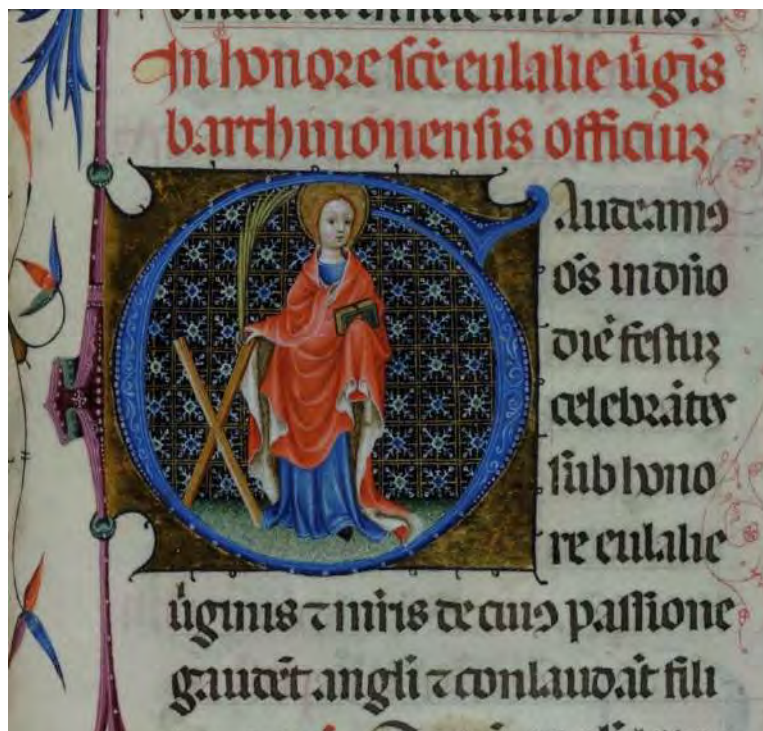 In honore sc̄e eulalie ūgīs
barchinonensis officiuꝫ
Gaudeamꝰ
oēs in dn̄o
diē festuꝫ
celebrātes
sub hono
re eulalie
ūginis ⁊ mr̄is de cuiꝰ passione
gaudēt angli ⁊ conlaudāt fili